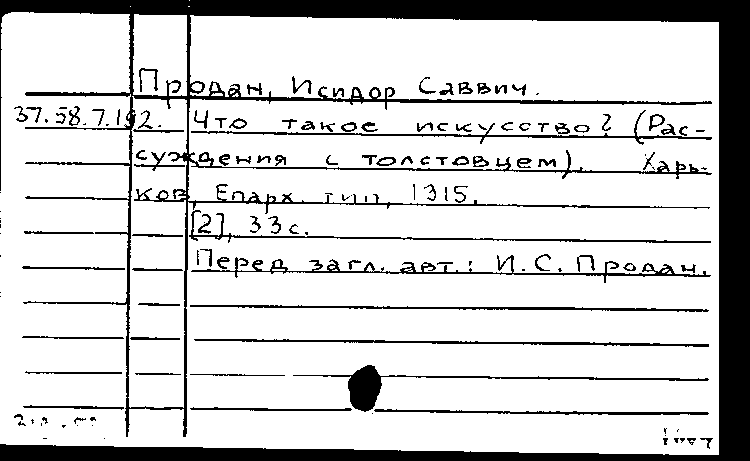 Продан, Исидор Саввич.
37.58.7.192. Что такое искусство? (Рас-
суждения с толстовцем). Харь-
ков, Епарх. тип, 1915.
[2], 33с.
Перед загл. авт.: И.С. Продан.